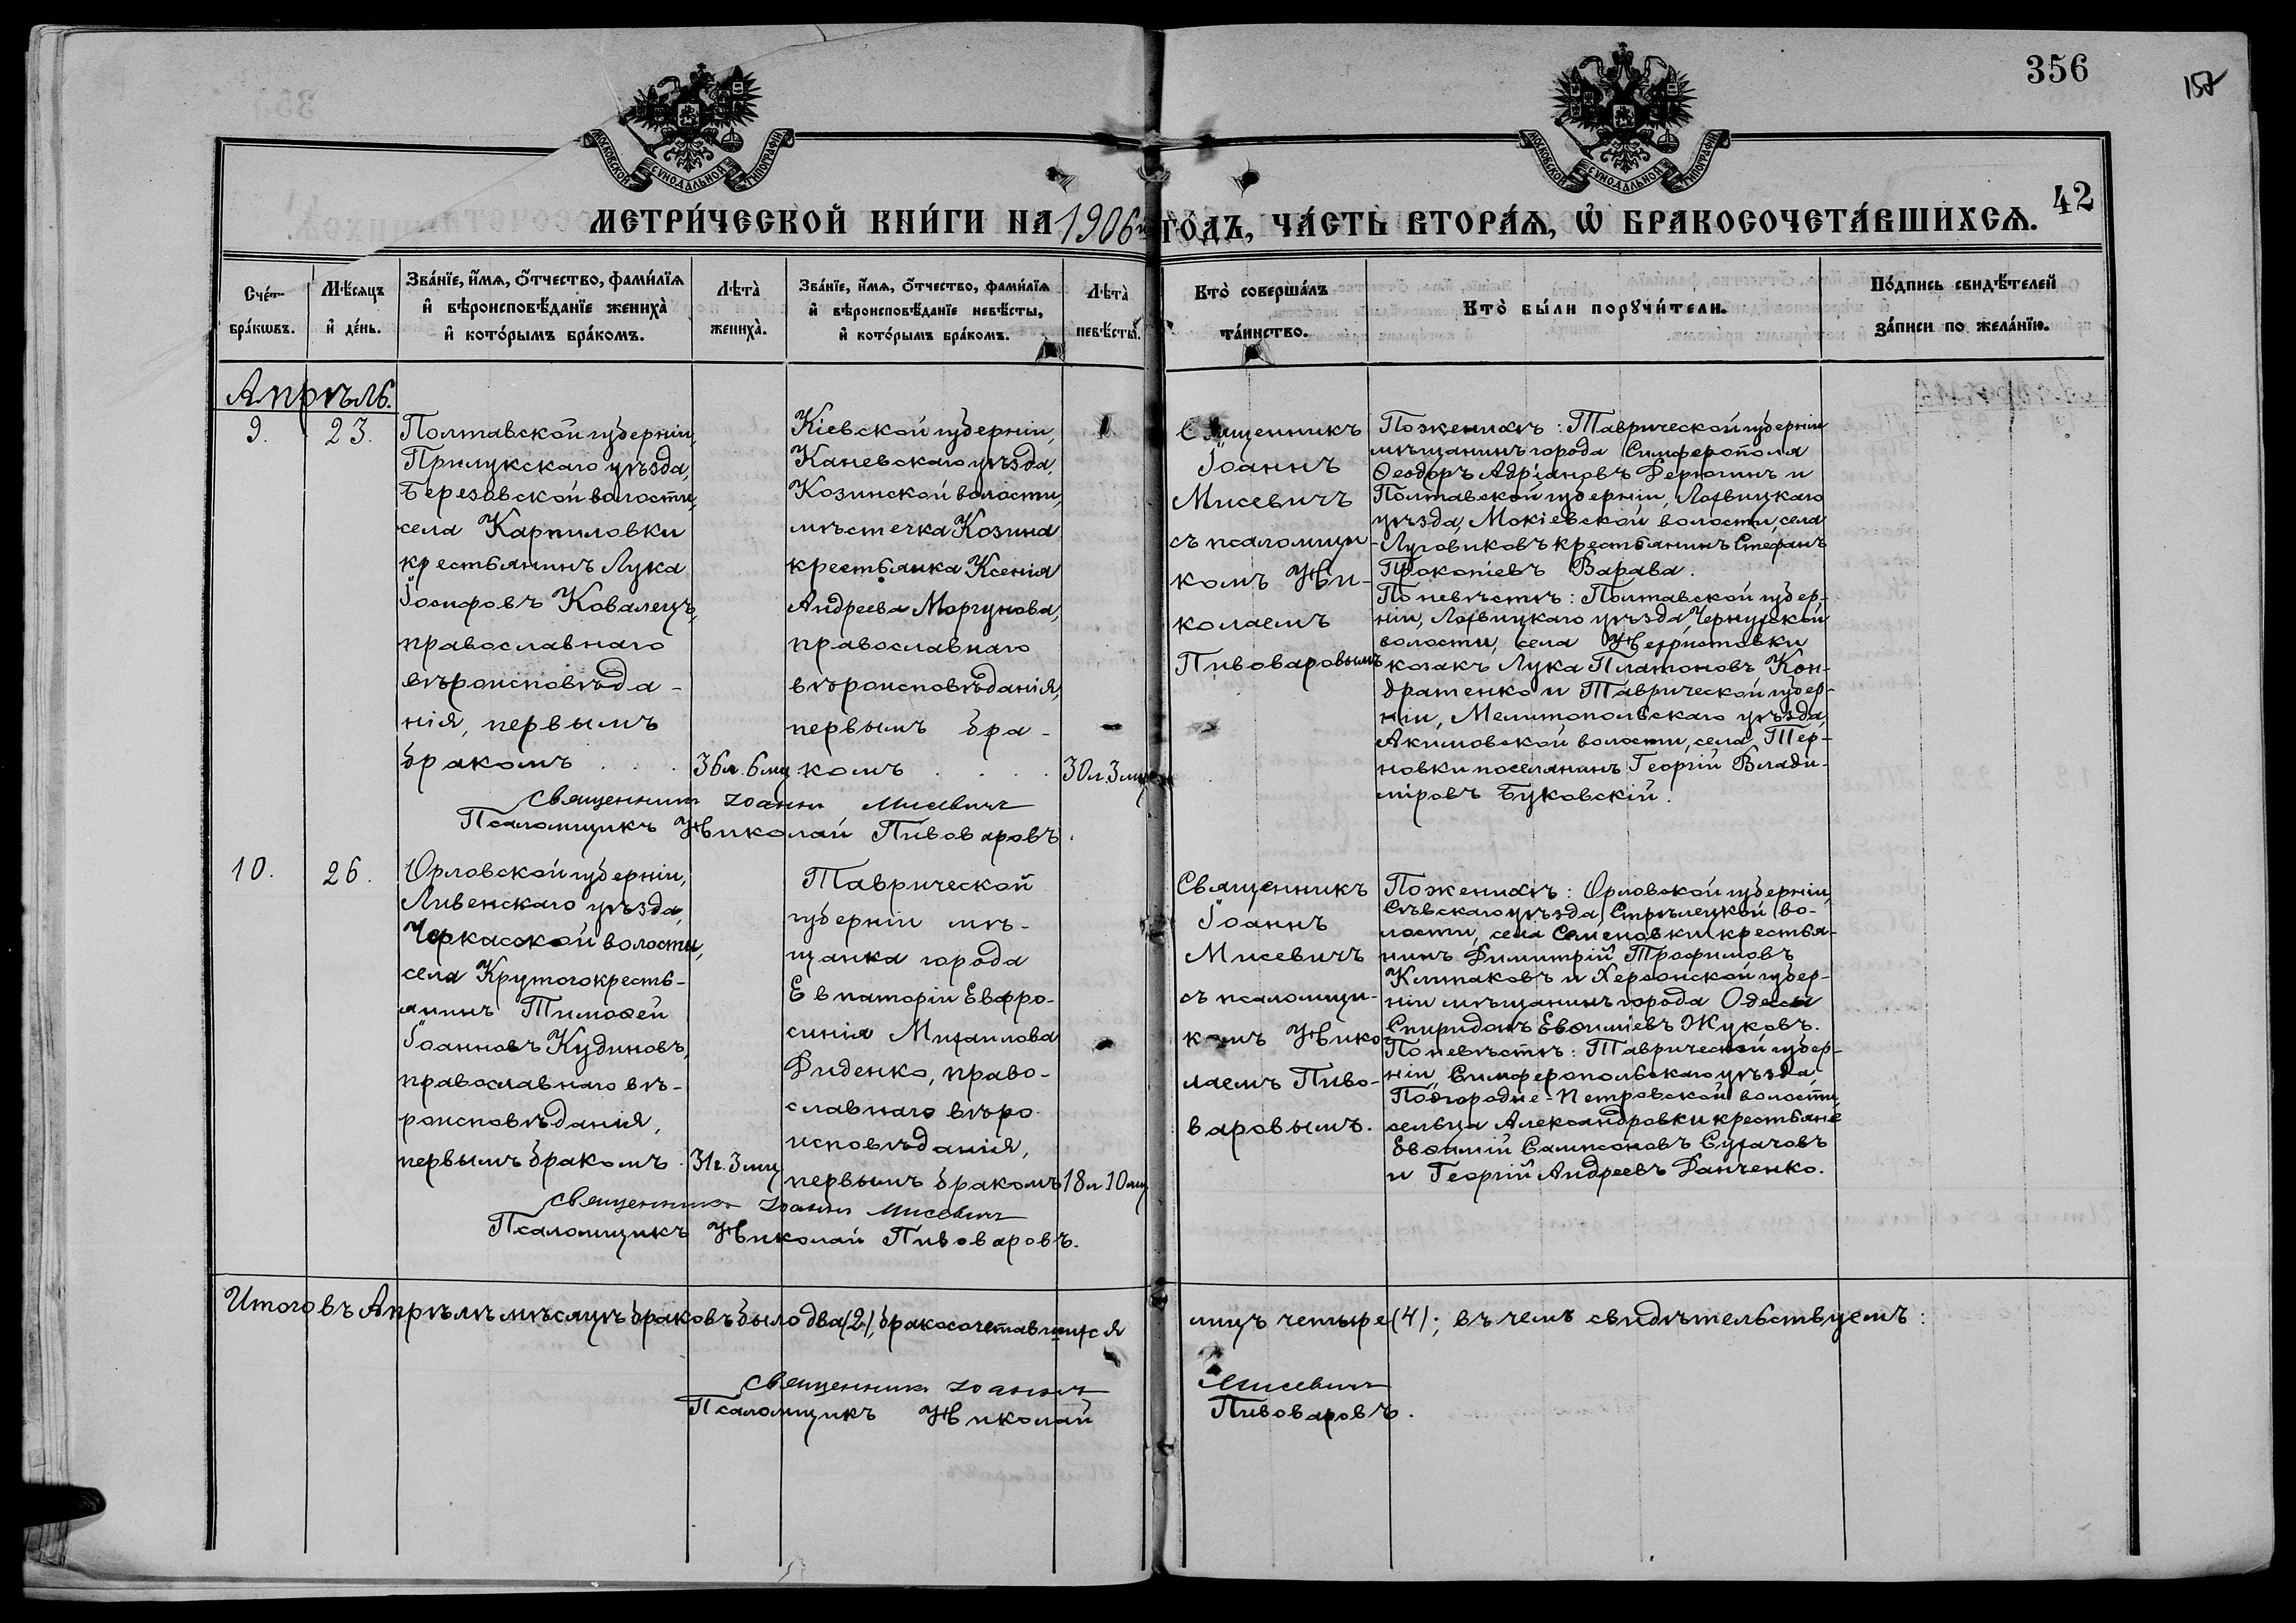 356
157
МОСКОВСКОЙ СУНОДАЛЬНОЙ ТИПОГРАФІИ
МОСКОВСКОЙ СУНОДАЛЬНОЙ ТИПОГРАФІИ
42
МЕТРИ́ЧЕСКОЙ КНИ́ГИ НА 1906й ГО́ДЪ, ЧА́СТЬ ВТОРА́Ѧ, Ѡ҆ БРАКОСОЧЕТА́ВШИХСѦ.
Сче́тъ бра́кѡвъ.
Мѣ́сѧцъ и҆ де́нь.
Зва́нїе, и҆́мѧ, ѻ҆́тчество, фами́лїѧ
и҆ вѣроисповѣ́данїе жениха̀
и҆ кото́рымъ бра́комъ.
Лѣта̀ жениха̀.
Зва́нїе, и҆́мѧ, ѻ҆́тчество, фами́лїѧ
и҆ вѣроисповѣ́данїе невѣ́сты,
и҆ кото́рымъ бра́комъ.
Лѣта̀ невѣ́сты.
Кто̀ соверша́лъ та́инство.
Кто̀ бы́ли порꙋчи́тели.
По́дпись свидѣ́телей
за́писи по жела́нїю.
Апрѣль.
9.
23.
Полтавской губерніи,
Прилукскаго уѣзда,
Березовской волости,
села Карпиловки
крестьянинъ Лука
Іосифовъ Ковалецъ,
православнаго
вѣроисповѣда-
нія, первымъ
бракомъ . . .
36л. 6мц.
Кіевской губерніи,
Каневскаго уѣзда,
Козинской волости,
мѣстечка Козина
крестьянка Ксенія
Андреева Моргунова,
православнаго
вѣроисповѣданія,
первымъ бра-
комъ . . . .
30л. 3мц.
Священникъ
Іоаннъ
Мисевичъ
съ псаломщи-
комъ Ни-
колаемъ
Пивоваровымъ
По женихѣ: Таврической губерніи
мѣщанинъ города Симферополя
Ѳеодоръ Адріановъ Дерюгинъ и
Полтавской губерніи, Лохвицкаго
уѣзда, Мокіевской волости, села
Луговиковъ крестьянинъ Стефанъ
Прокопіевъ Варава.
По невѣстѣ: Полтавской губер-
ніи, Лохвицкаго уѣзда Чернухской
волости, села Нехристовки
козакъ Лука Платоновъ Кон-
дратенко и Таврической губер-
ніи, Мелитопольскаго уѣзда,
Акимовской волости, села Тер-
новки поселянинъ Георгій Влади-
міровъ Буковскій.
Священникъ Іоаннъ Мисевичъ
Псаломщикъ Николай Пивоваровъ.
10.
26.
Орловской губерніи,
Ливенскаго уѣзда,
Черкасской волости,
села Крутого кресть-
янинъ Тимоѳей
Іоанновъ Кудиновъ,
православнаго вѣ-
роисповѣданія,
первымъ бракомъ.
31г. 3мц.
Таврической
губерніи мѣ-
щанка города
Евпаторіи Евфро-
синія Михаилова
Диденко, право-
славнаго вѣро-
исповѣданія,
первымъ бракомъ
18л 10мц
Священникъ
Іоаннъ
Мисевичъ
съ псаломщи-
комъ Нико-
лаемъ Пиво-
варовымъ.
По женихѣ: Орловской губерніи,
Сѣвскаго уѣзда, Стрѣлецкой во-
лости, села Семеновки крестья-
нинъ Димитрій Трофимовъ
Климаковъ и Херсонской губер-
ніи мѣщанинъ города Одессы
Спиридонъ Евѳиміевъ Жуковъ.
По невѣстѣ: Таврической губер-
ніи, Симферопольскаго уѣзда,
Подгородне-Петровской волости,
сельца Александровки крестьяне
Евѳимій Сампсоновъ Сухачовъ
и Георгій Андреевъ Данченко.
Священникъ Іоаннъ Мисевичъ
Псаломщикъ Николай Пивоваровъ.
Итого въ Апрѣлѣ мѣсяцѣ браковъ было два (2), бракосочетавшихся лицъ четыре (4); въ чемъ свидѣтельствуемъ:
Священникъ Іоаннъ Мисевичъ
Псаломщикъ Николай Пивоваровъ.